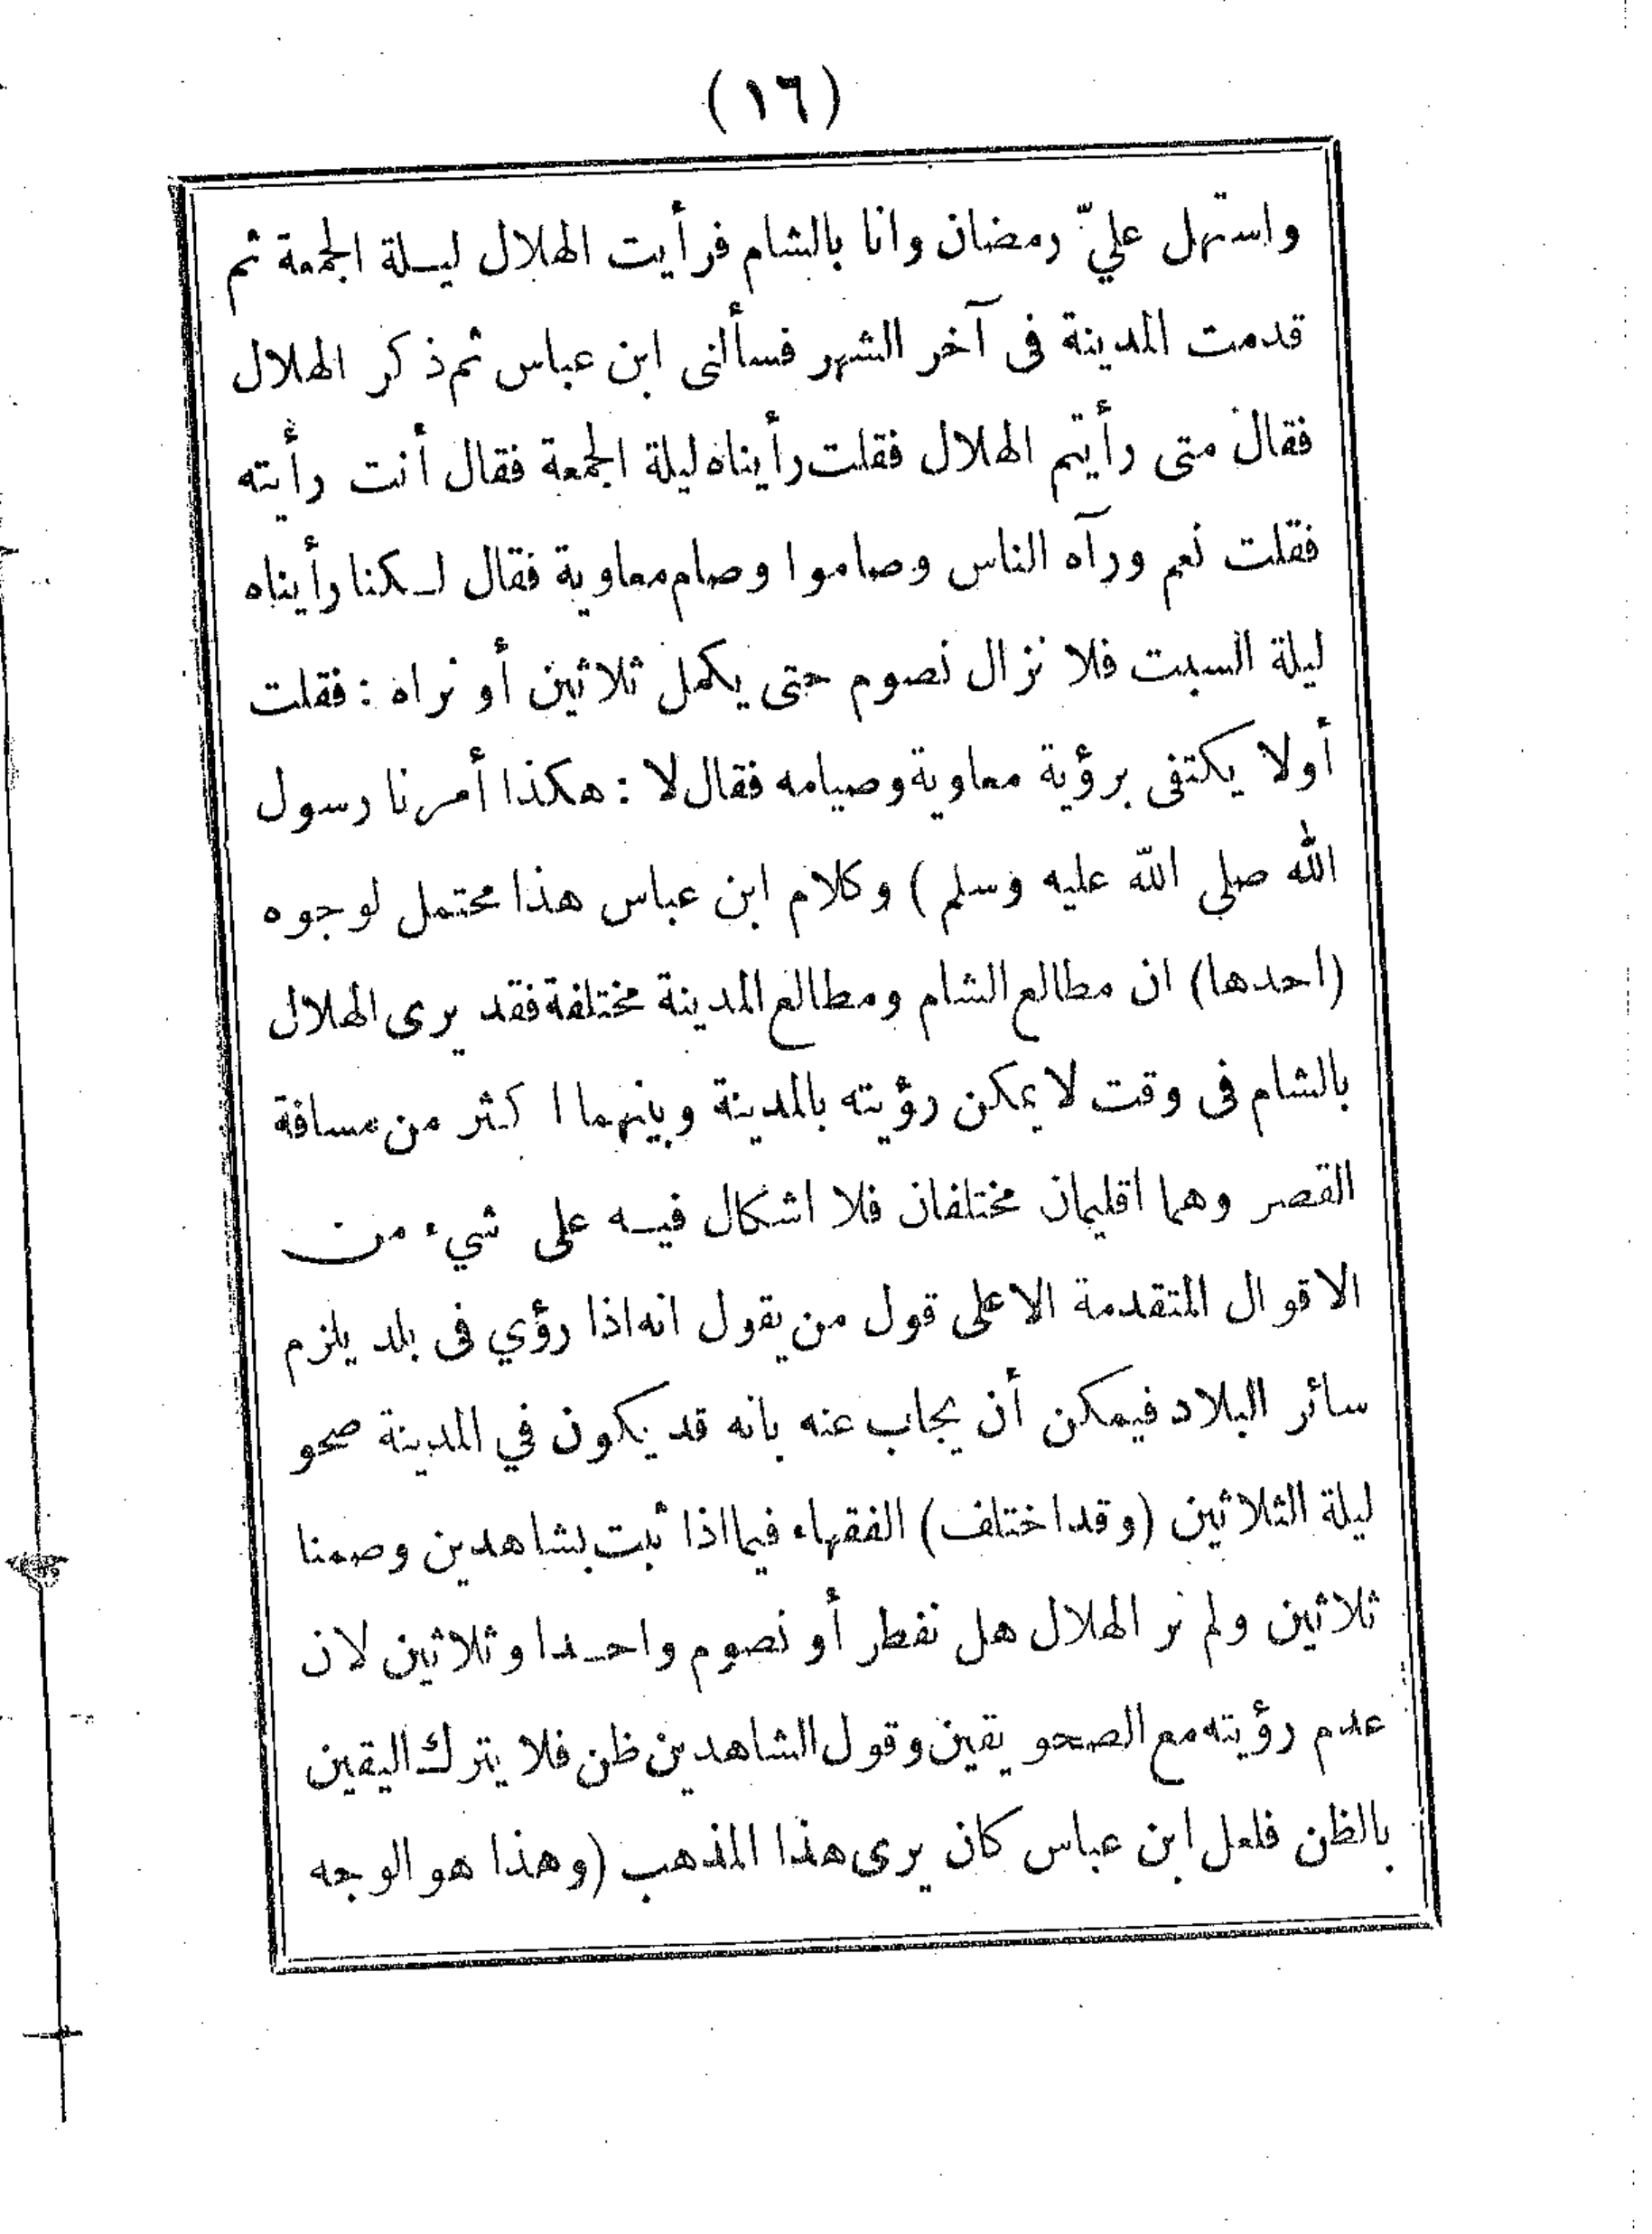 (١٦)
واستهل عليّ رمضان وانا بالشام فرأيت الهلال ليلة الجمعة ثم
قدمت المدينة فى آخر الشهر فسألنى ابن عباس ثم ذكر الهلال
فقال متى رأيتم الهلال فقلت رأيناه ليلة الجمعة فقال أنت رأيته
فقلت نعم ورآه الناس وصاموا وصام معاوية فقال لكنا رأيناه
ليلة السبت فلا نزال نصوم حتى يكمل ثلاثين أو نراه : فقلت
أولا يكتفى برؤية معاوية وصيامه فقال لا : هكذا أمرنا رسول
الله صلى الله عليه وسلم ) وكلام ابن عباس هذا محتمل لوجوه
(احدها) ان مطالع الشام ومطالع المدينة مختلفة فقد يرى الهلال
بالشام فى وقت لا يمكن رؤيته بالمدينة وبينهما اكثر من مسافة
القصر وهما اقليمان مختلفان فلا اشكال فيه على شيء من
الاقوال المتقدمة الا على قول من يقول انه اذا رؤي فى بلد يلزم
سائر البلاد فيمكن أن يجاب عنه بانه قد يكون في المدينة صحو
ليلة الثلاثين (وقد اختلف) الفقهاء فيما اذا ثبت بشاهدين وصمنا
ثلاثين ولم نر الهلال هل نفطر أو نصوم واحدا وثلاثين لان
عدم رؤيته مع الصحو يقين وقول الشاهدين ظن فلا يترك اليقين
بالظن فلعل ابن عباس كان يرى هذا المذهب (وهذا هو الوجه